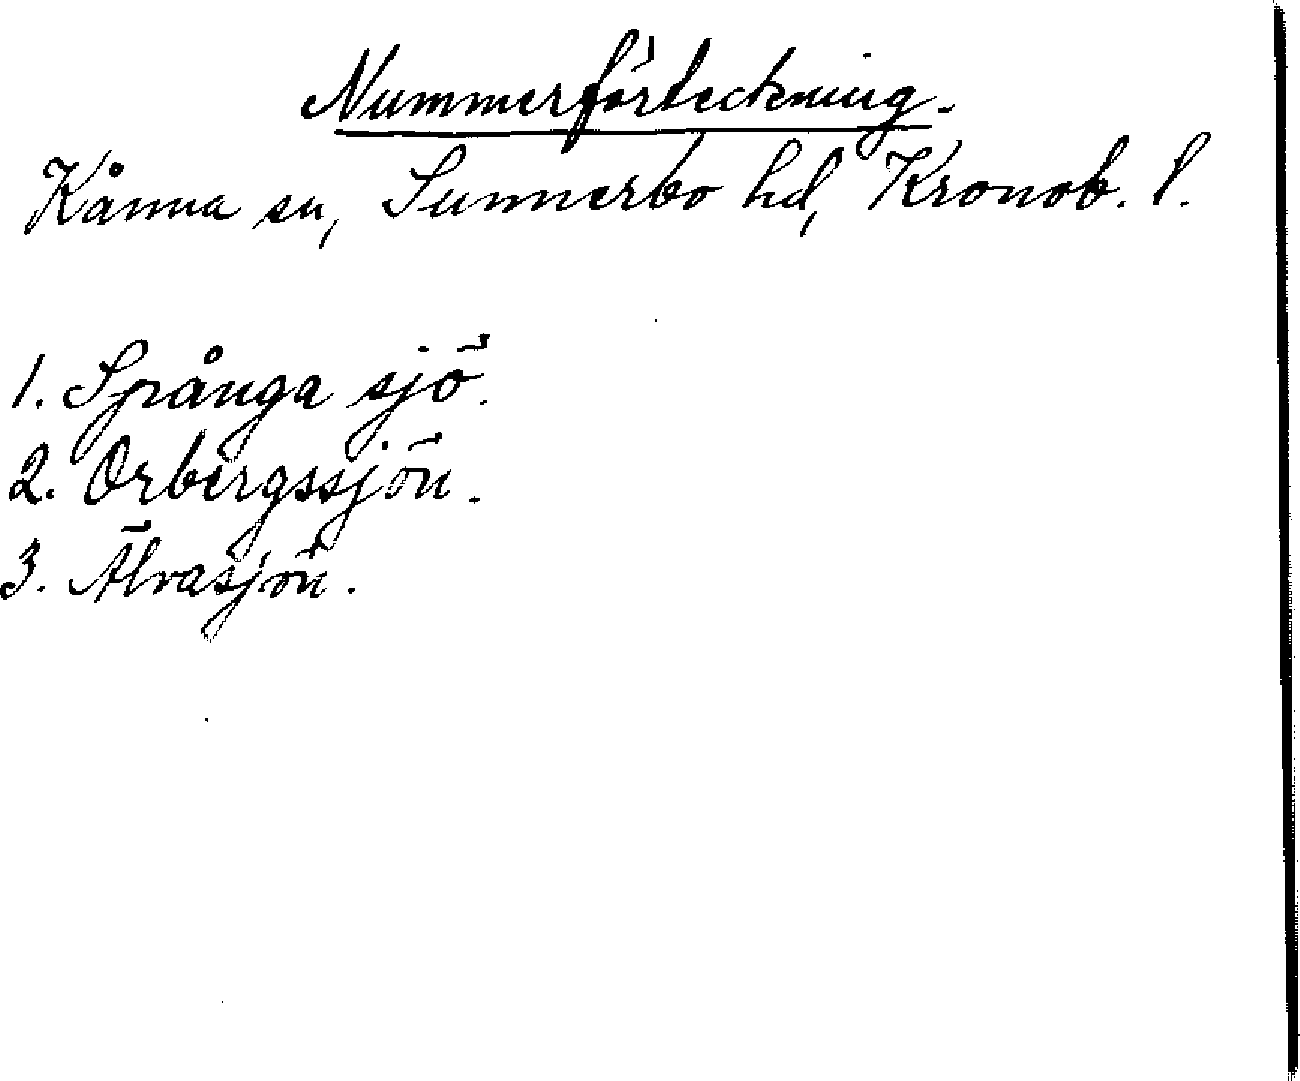 Nummerförteckning.
Kånna sn, Sunnerbo hd, Kronob. l.
1. Spånga sjö.
2. Orbergssjön.
3. Älvasjön.